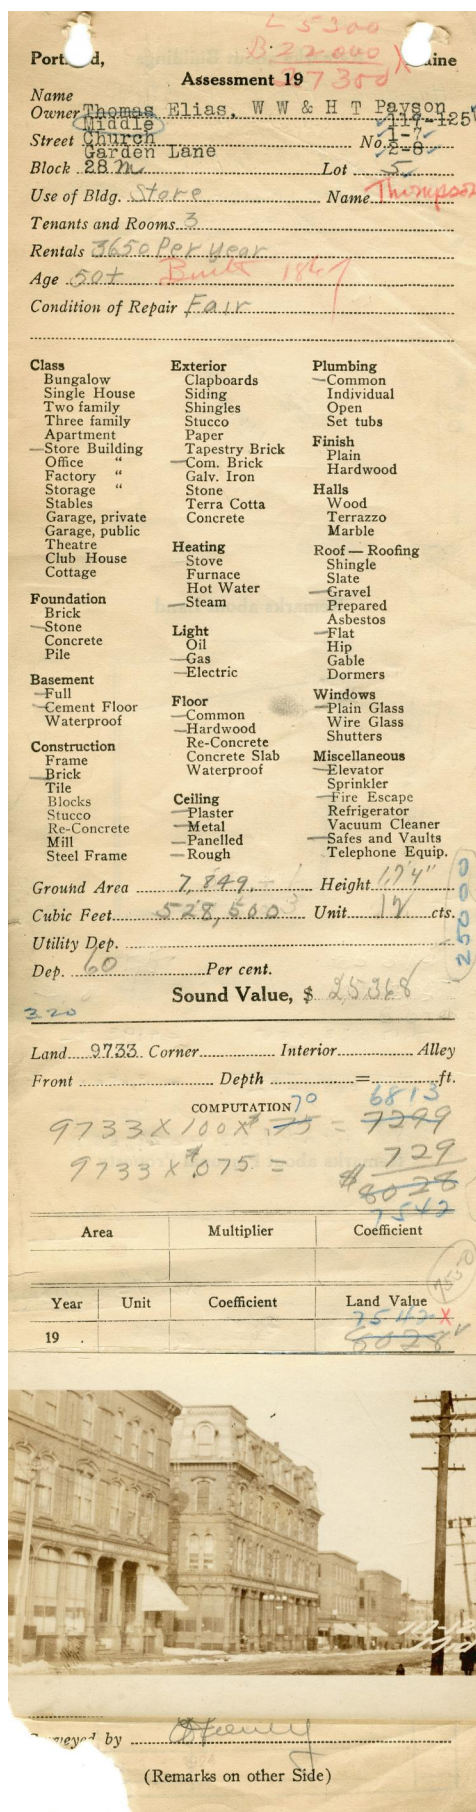 L 5300
B 22000
27300 X
Portl d, aine
Assessment 19
Name
Owner Thomas Elias, W W & H T Payson
Middle 117-125
Street Church No. 1-7
Garden Lane 2-8
Block 28 M Lot 5
Use of Bldg. Store Name Thompson
Tenants and Rooms 3
Rentals 3650 Per Year
Age 50+ Built 1867
Condition of Repair Fair
Class
Bungalow
Single House
Two family
Three family
Apartment
Store Building
Office "
Factory "
Storage "
Stables
Garage, private
Garage, public
Theatre
Club House
Cottage
Foundation
Brick
Stone
Concrete
Pile
Basement
Full
Cement Floor
Waterproof
Construction
Frame
Brick
Tile
Blocks
Stucco
Re-Concrete
Mill
Steel Frame
Exterior
Clapboards
Siding
Shingles
Stucco
Paper
Tapestry Brick
Com. Brick
Galv. Iron
Stone
Terra Cotta
Concrete
Heating
Stove
Furnace
Hot Water
Steam
Light
Oil
Gas
Electric
Floor
Common
Hardwood
Re-Concrete
Concrete Slab
Waterproof
Ceiling
Plaster
Metal
Panelled
Rough
Plumbing
Common
Individual
Open
Set tubs
Finish
Plain
Hardwood
Halls
Wood
Terrazzo
Marble
Roof — Roofing
Shingle
Slate
Gravel
Prepared
Asbestos
Flat
Hip
Gable
Dormers
Windows
Plain Glass
Wire Glass
Shutters
Miscellaneous
Elevator
Sprinkler
Fire Escape
Refrigerator
Vacuum Cleaner
Safes and Vaults
Telephone Equip.
Ground Area 7,849. Height
Cubic Feet 528,500 Unit 12 cts.
Utility Dep.
25000
Dep. 60 Per cent.
Sound Value, $ 25368
320
Land 9733 Corner Interior Alley
Front Depth = ft.
COMPUTATION 70 6813
9733 X 100 X .75 = 7299
9733 X .075 = 729
$ 8028
7542
Area Multiplier Coefficient
7550
Year Unit Coefficient Land Value
7542 X
19 . 8028
veyed by
(Remarks on other Side)